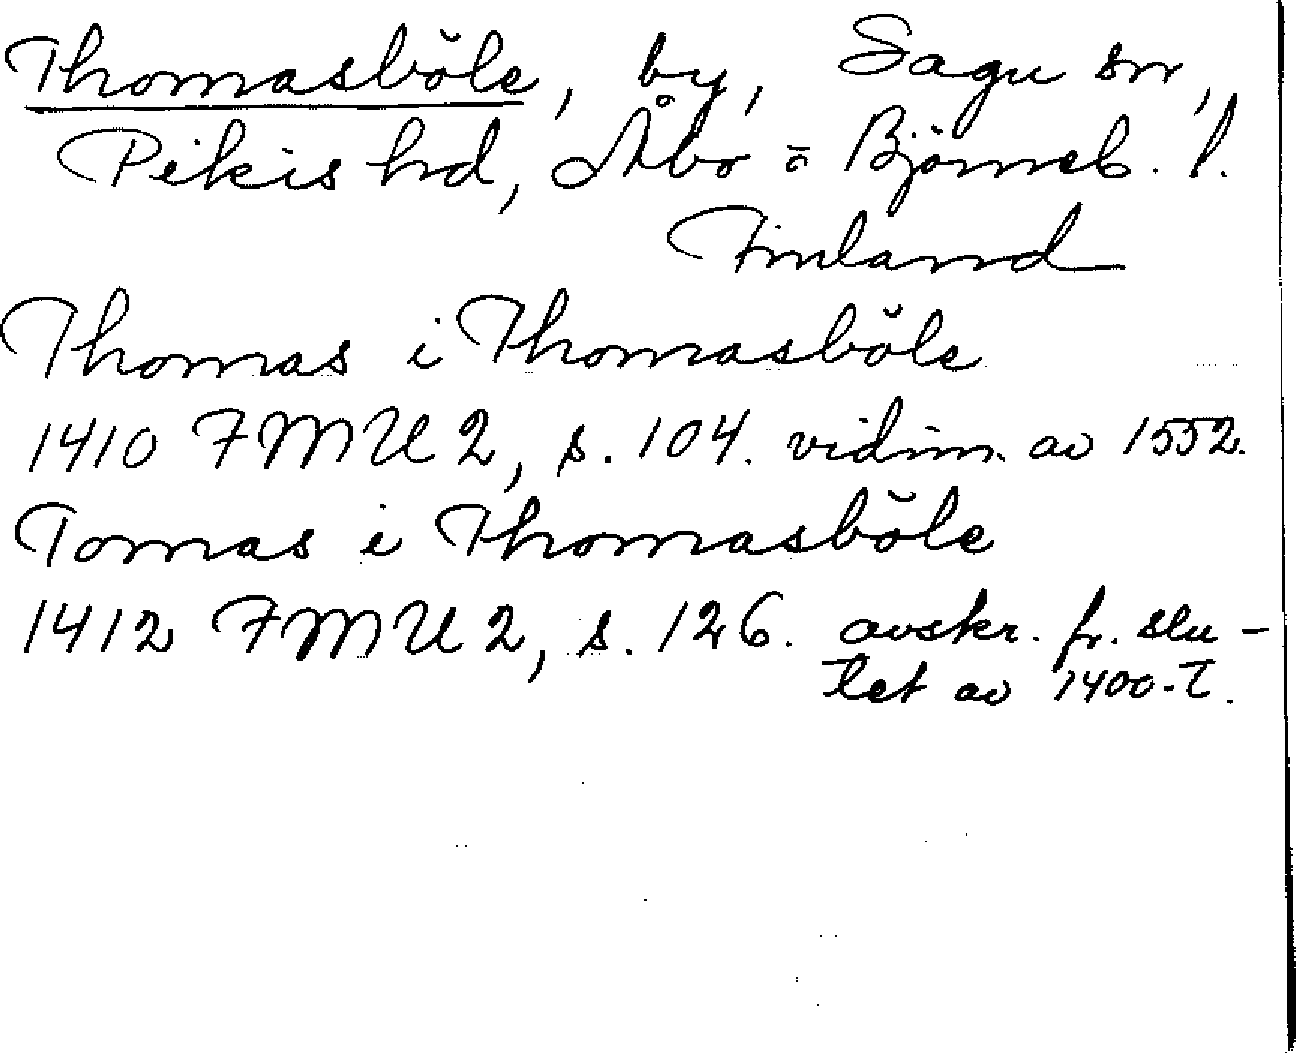 Thomasböle, by, Sagu sn,
Pikis hd, Åbo o Björneb. l.
Finland
Thomas i Thomasböle
1410 FMU 2, s. 104. vidim. av 1552.
Tomas i Thomasböle
1412 FMU 2, s. 126. avskr. fr. slu-
tet av 1400-t.